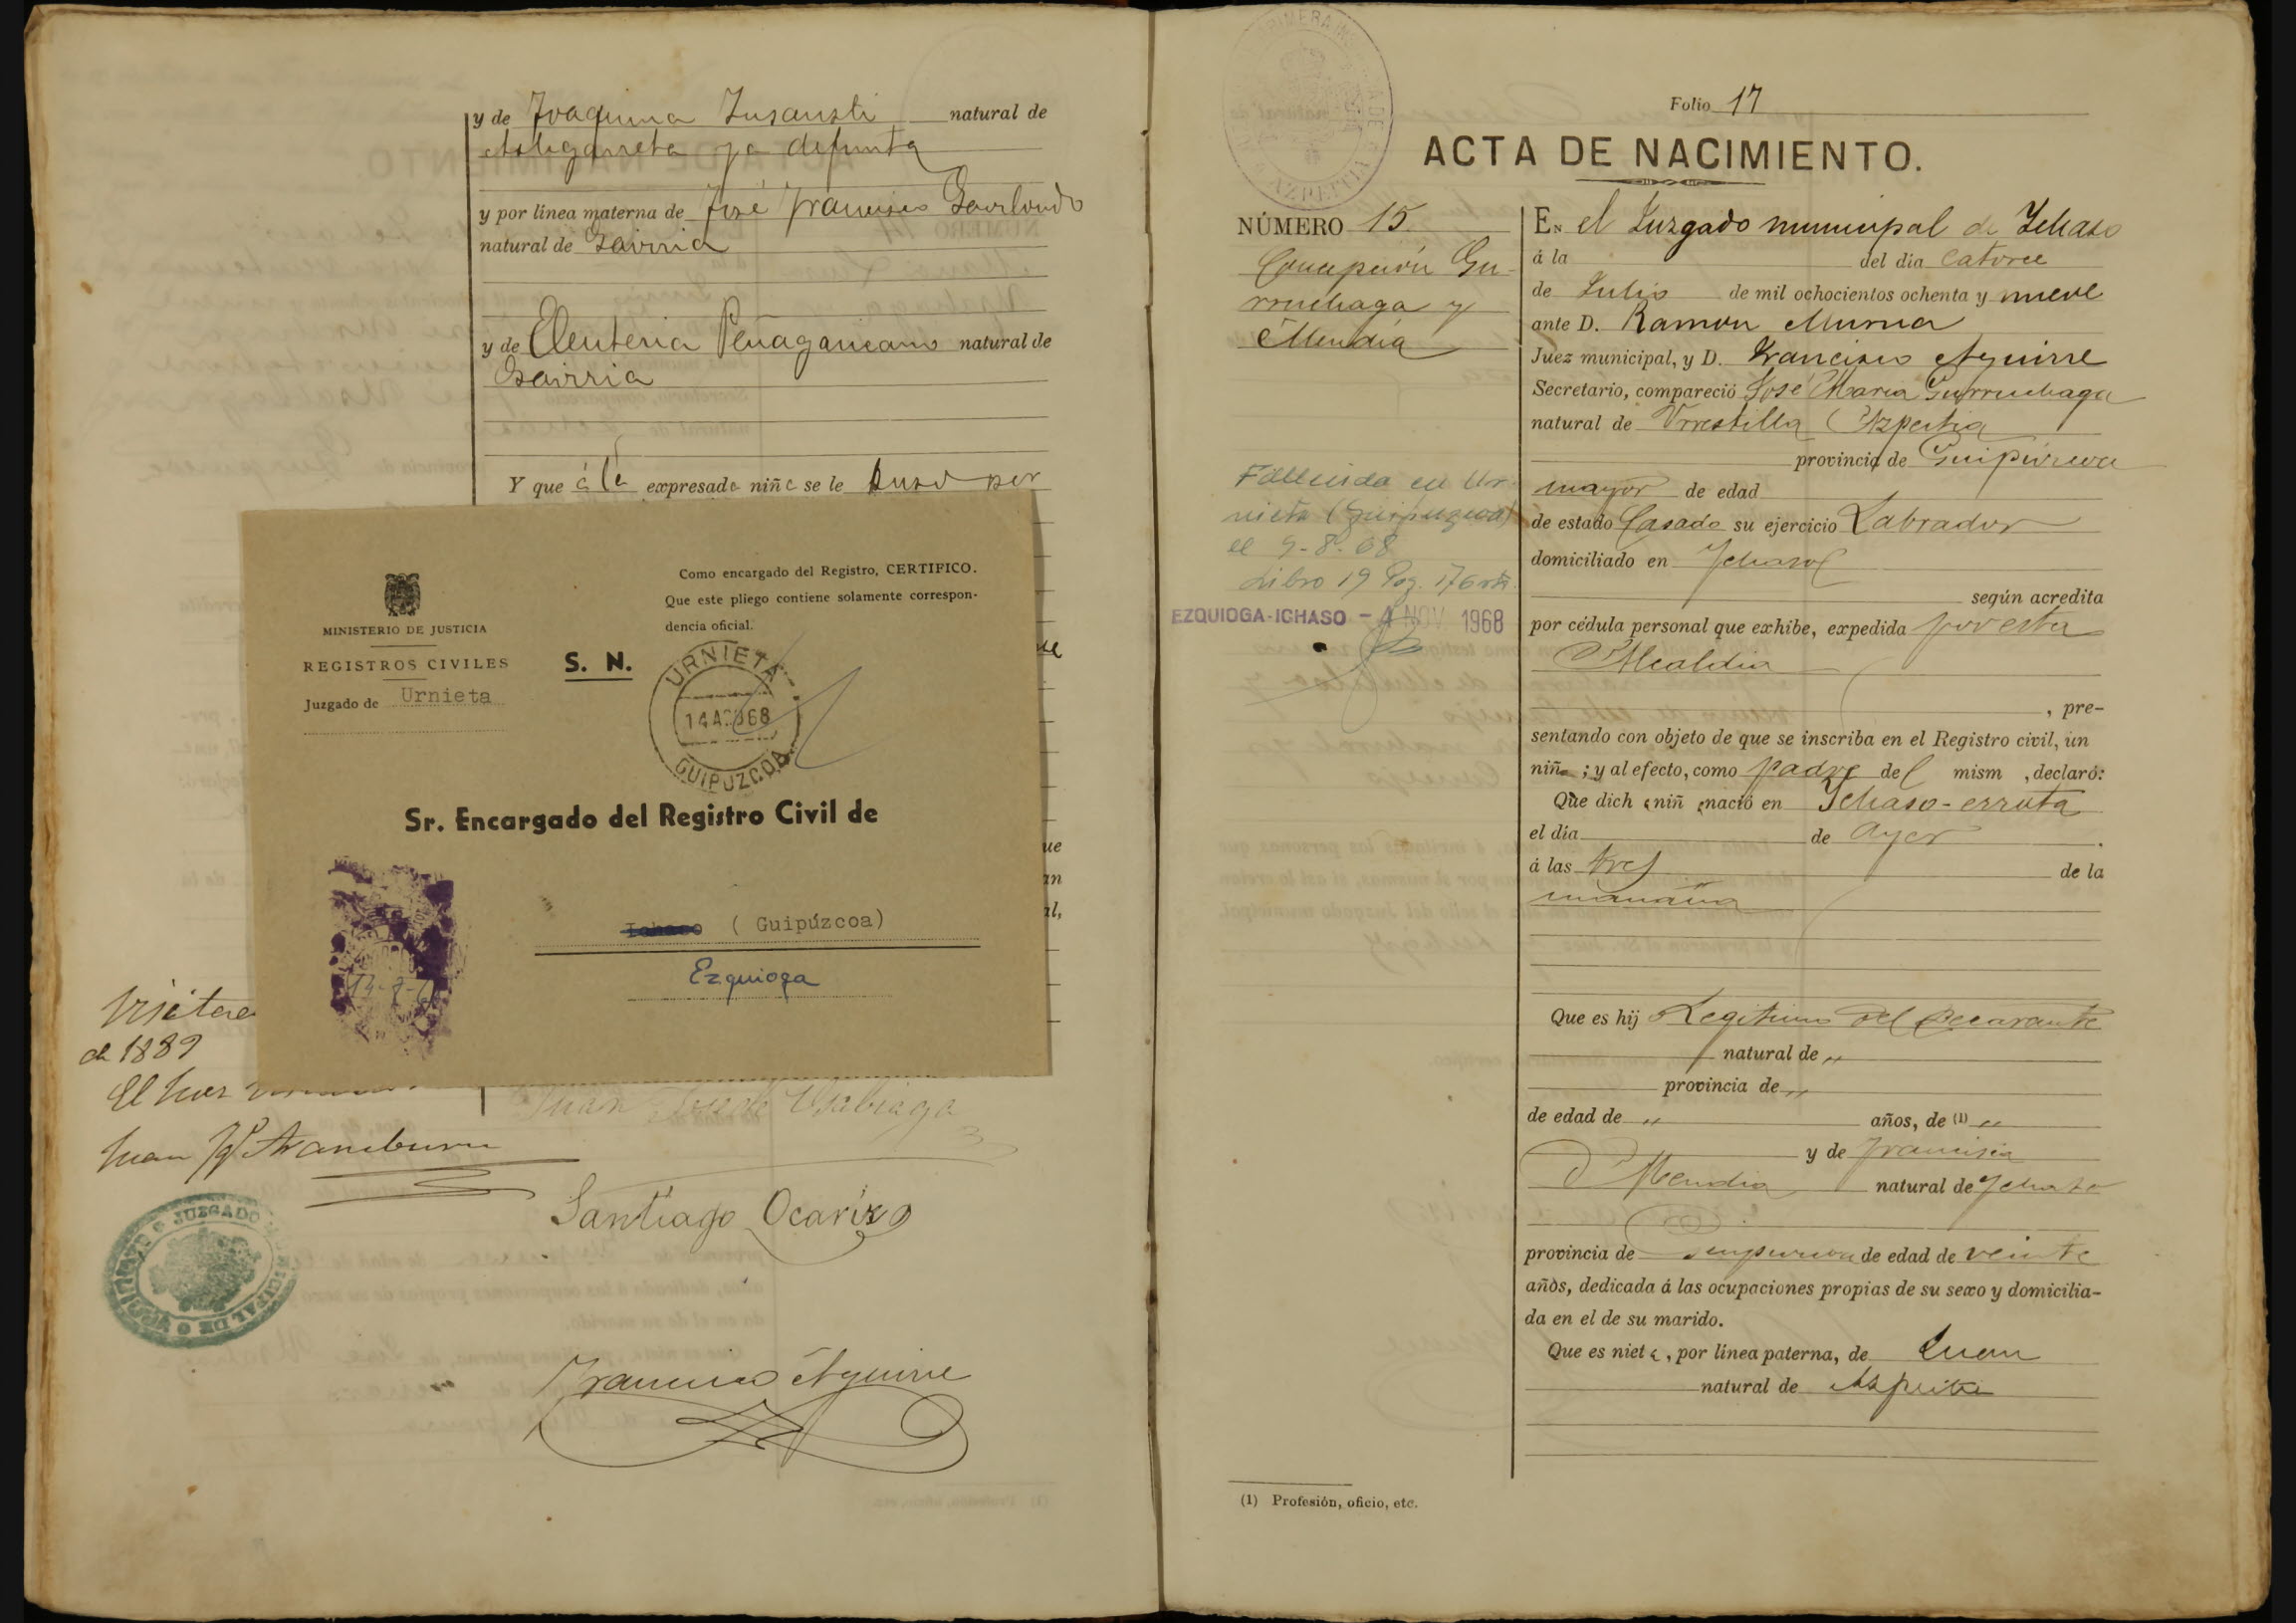 y de Joaquina Insausti natural de
Astigarreta ya difunta
y por línea materna de José Francisco Gorrlondo
natural de Gaviria
y de Eleuteria Peñagaricano natural de
Gaviria
Y que á la expresada niña se le puso por
MINISTERIO DE JUSTICIA
REGISTROS CIVILES
Juzgado de Urnieta
S. N.
Como encargado del Registro, CERTIFICO.
Que este pliego contiene solamente correspon-
dencia oficial.
URNIETA
14 AGO 68
GUIPUZCOA
Sr. Encargado del Registro Civil de
Ichaso ( Guipúzcoa)
Ezquioga
ue
an
al,
de 1889
El Juez
Juan Aramburu
Juan José de Usabiaga
Santiago Ocariz
Francisco Aguirre
Folio 17
ACTA DE NACIMIENTO.
NÚMERO 15.
Concepción Gu-
rruchaga y
Mendia
Fallecida en Ur-
nieta (Guipuzcoa)
el 9-8-68
Libro 19 Pag. 176 vto.
EZQUIOGA-ICHASO - 4 NOV 1968
EN el Juzgado municipal de Ichaso
á la del dia catorce
de Julio de mil ochocientos ochenta y nueve
ante D. Ramon Murua
Juez municipal, y D. Francisco Aguirre
Secretario, compareció José Maria Gurruchaga
natural de Urrestilla Azpeitia
provincia de Guipúzcoa
mayor de edad
de estado Casado su ejercicio Labrador
domiciliado en Ichaso
según acredita
por cédula personal que exhibe, expedida por esta
Alcaldia
, pre-
sentando con objeto de que se inscriba en el Registro civil, un
niña ; y al efecto, como padre del mism , declaró:
Que dich a niñ a nació en Ichaso-errota
el día de ayer .
á las tres de la
mañana
Que es hij Legitimo del Decarante
natural de "
provincia de "
de edad de " años, de (1) "
y de Francisca
Mendia natural de Ichaso
provincia de Guipuzcoa de edad de veinte
años, dedicada á las ocupaciones propias de su sexo y domicilia-
da en el de su marido.
Que es niet a, por línea paterna, de Juan
natural de Azpeitia
(1) Profesión, oficio, etc.